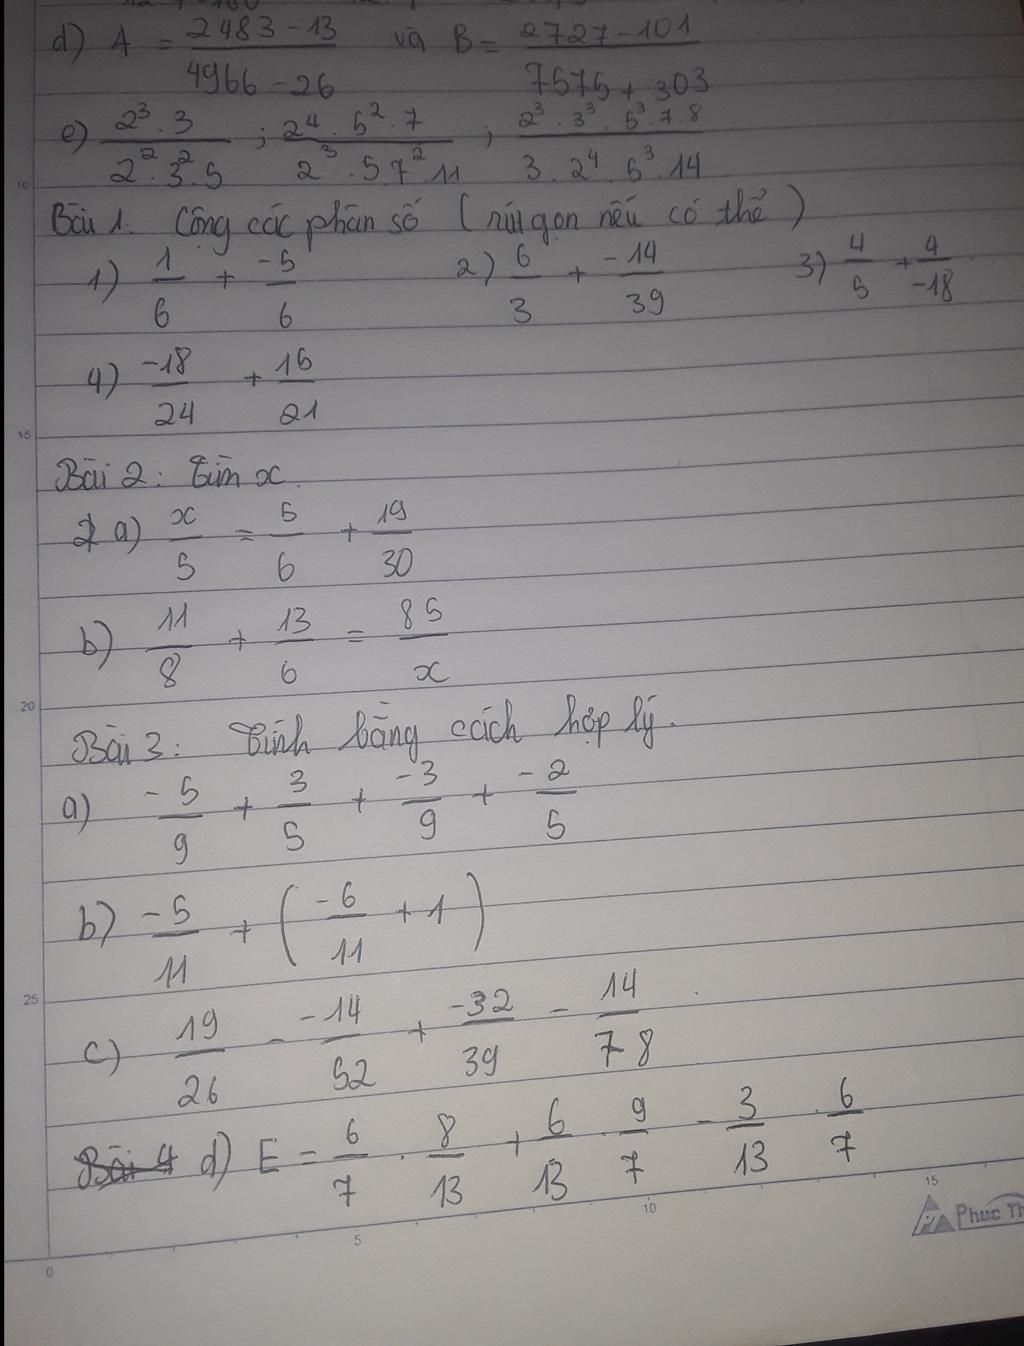 d) A = (2483 - 13)/(4966 - 26) và B = (2727 - 101)/(7575 + 303)
e) (2³ . 3)/(2² . 3² . 5) ; (2⁴ . 5² . 7)/(2³ . 5 7² . 11) ; (2³ . 3³ . 5³ . 7 . 8)/(3 . 2⁴ . 5³ . 14)
Bài 1. Cộng các phân số (rút gọn nếu có thể)
1) 1/6 + -5/6 2) 6/3 + -14/39 3) 4/5 + 4/-18
4) -18/24 + 15/21
Bài 2: Tìm x.
a) x/5 = 5/6 + 19/30
b) 11/8 + 13/6 = 85/x
Bài 3: Tính bằng cách hợp lý.
a) -5/9 + 3/5 + -3/9 + -2/5
b) -5/11 + (-6/11 + 1)
c) 19/26 - -14/52 + -32/39 - 14/78
Bài 4 d) E = 6/7 . 8/13 + 6/13 . 9/7 - 3/13 . 6/7
Phuc Th
10
15
20
25
0
5
10
15